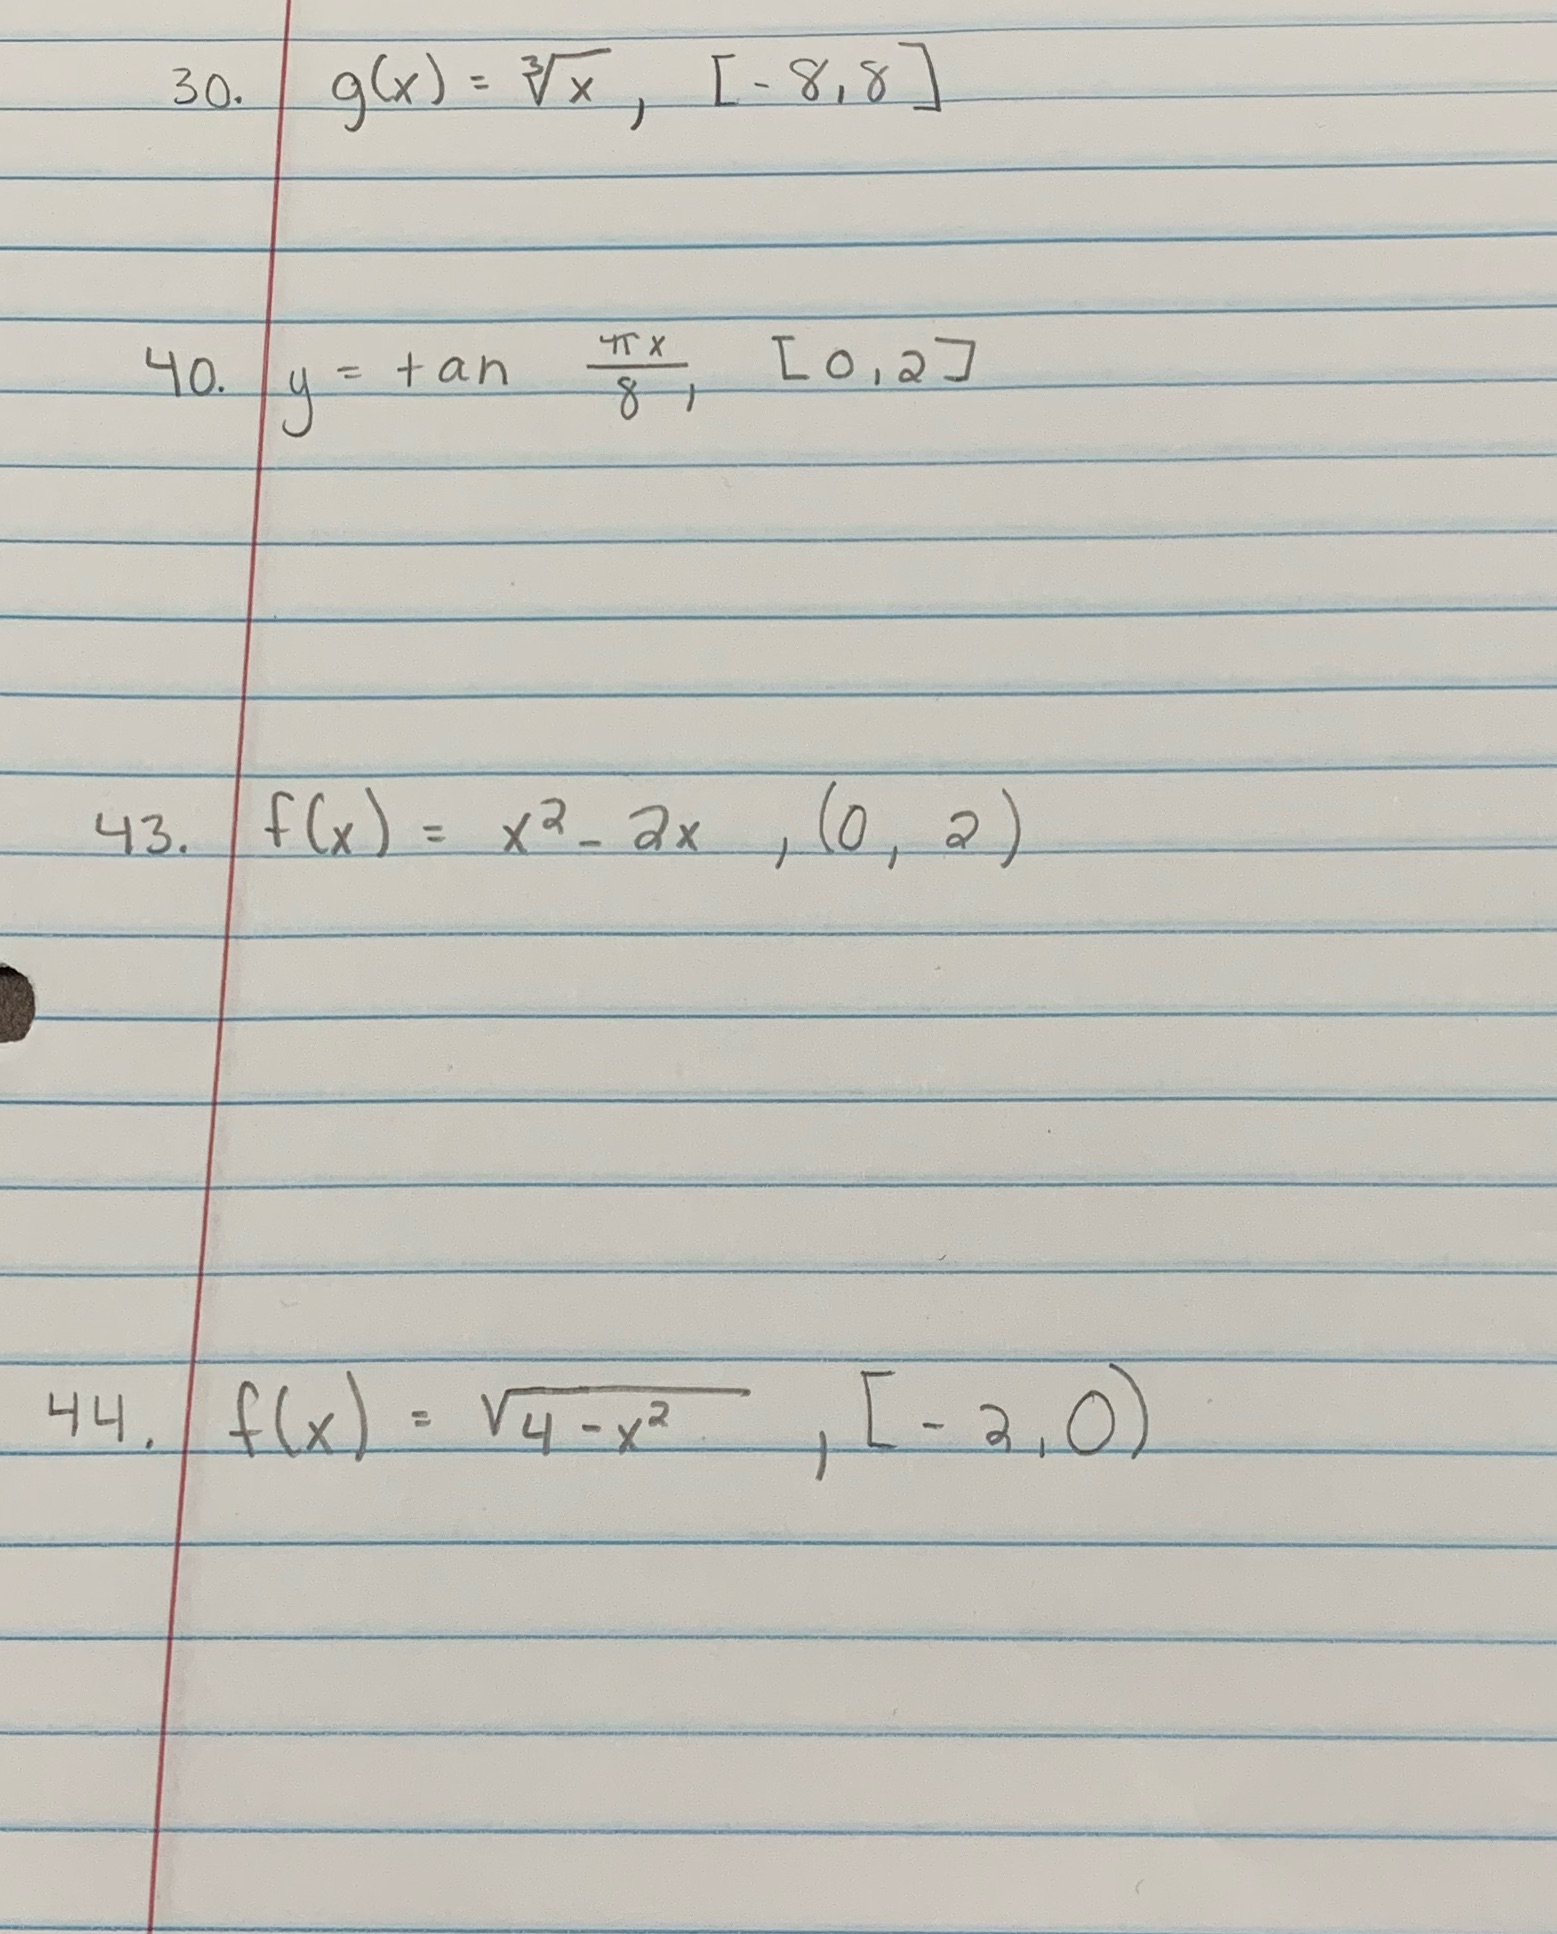 30. g(x) = ∛x, [-8,8]
40. y = tan πx/8, [0,2]
43. f(x) = x² - 2x, (0, 2)
44. f(x) = √(4-x²), [-2,0)